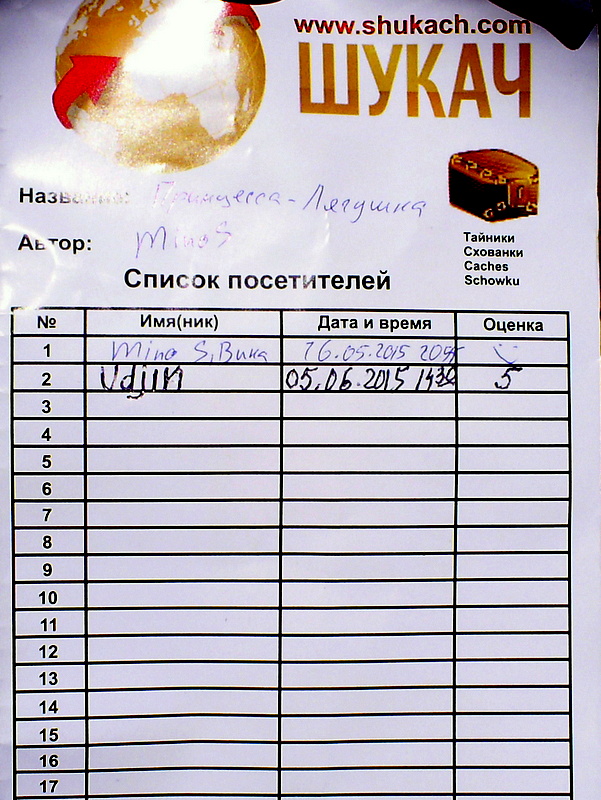 www.shukach.com
ШУКАЧ
Название: Принцесса-Лягушка
Автор: MinoS
Тайники
Схованки
Caches
Schowku
Список посетителей
№ Имя(ник) Дата и время Оценка
1 Mino S, Вика 16.05.2015
2 Udjin 05.06.2015 5
3
4
5
6
7
8
9
10
11
12
13
14
15
16
17